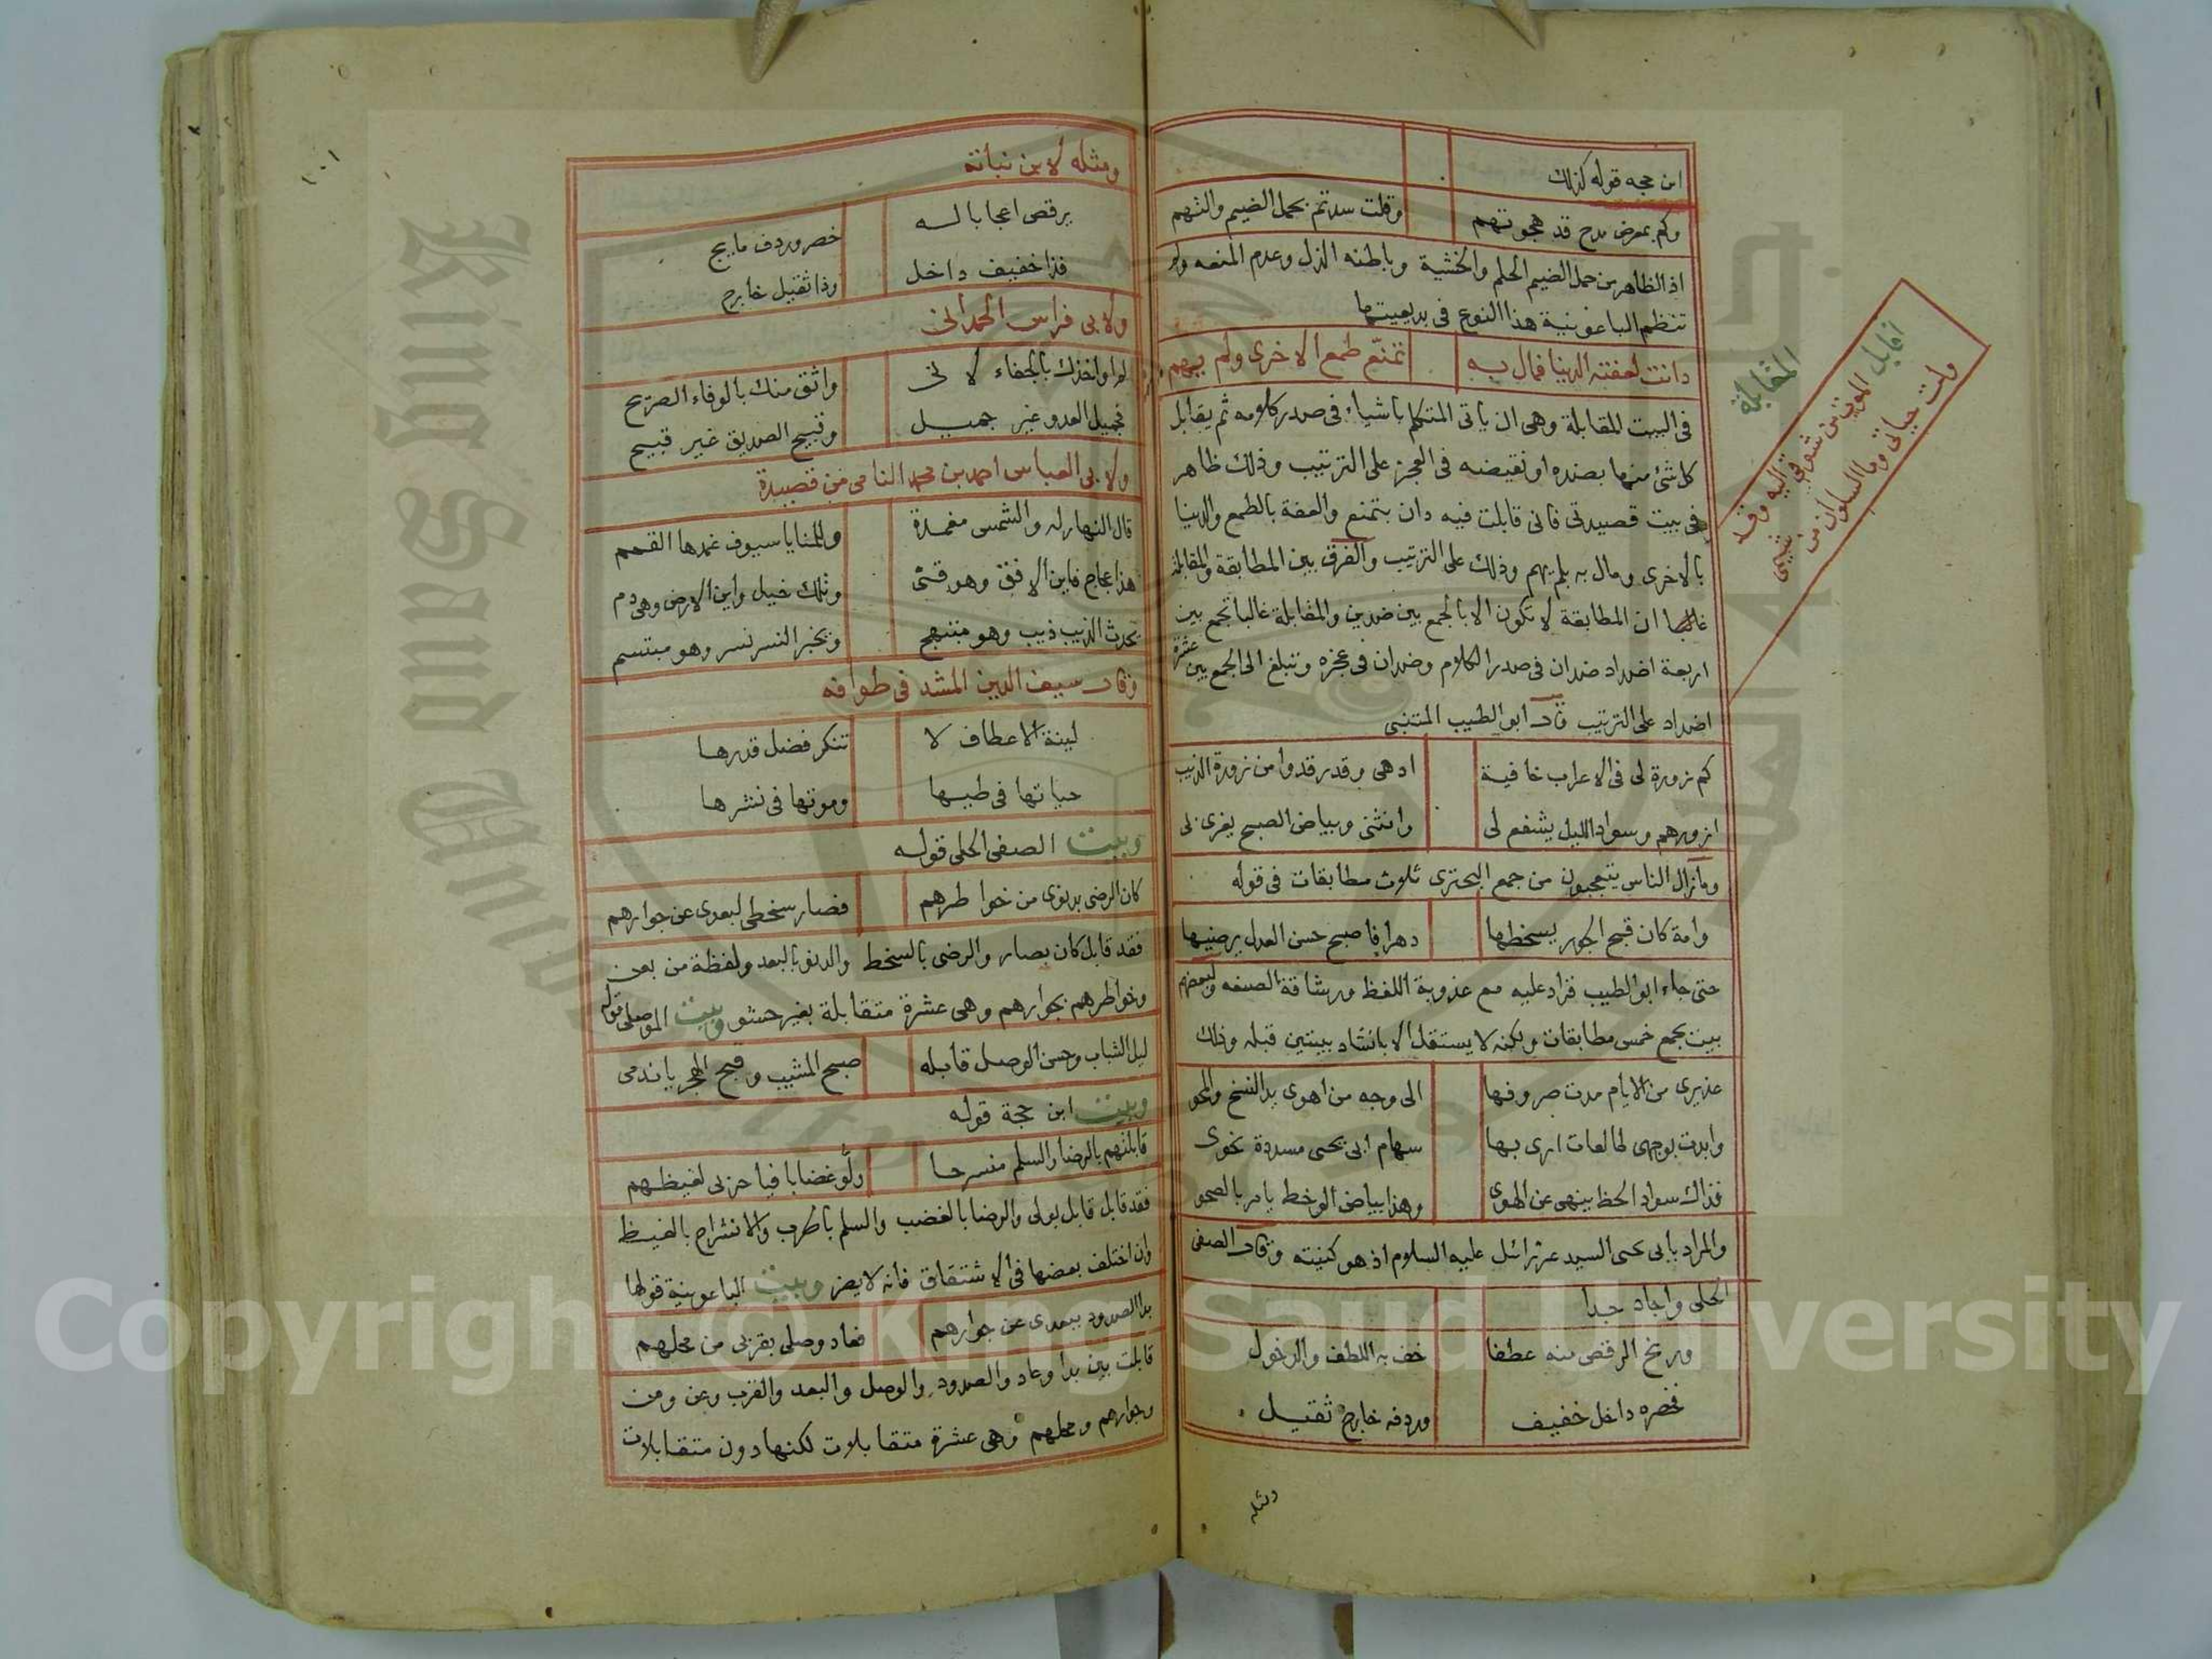 ابن حجه قوله كذلك
وكم بمعرض مدح قد هجوتهم وقلت سدتم بحمل الضيم والتهم
اذ الظاهر من حمل الضيم الحلم والخشية وباطنه الذل وعدم المنعه ولم
تنظم الباعونية هذا النوع في بديعيتها
دانت لعفته الدنيا فمال به تمنّع طمع الاخرى ولم يهم
المقابلة
في البيت المقابلة وهى ان ياتى المتكلم باشياء فى صدر كلامه ثم يقابل
كل شئ منها بضده او نقيضه فى العجز على الترتيب وذلك ظاهر
فى بيت قصيدتى فانى قابلت فيه دان بتمنع والعفة بالطمع والدنيا
بالاخرى ومال به بلم يهم وذلك على الترتيب والفرق بين المطابقة والمقابلة
غالبا ان المطابقة لا تكون الا بالجمع بين ضدين والمقابلة غالبا تجمع بين
اربعة اضداد ضدان فى صدر الكلام وضدان فى عجزه وتبلغ الى الجمع بين عشرة
اضداد على الترتيب قال ابو الطيب المتنبى
كم زورة لى فى الاعراب خافية ادهى وقد رقدوا من زورة الذيب
ازورهم وسواد الليل يشفع لى وانثنى وبياض الصبح يغرى بى
ومازال الناس يتعجبون من جمع البحترى ثلاث مطابقات فى قوله
وامة كان قبح الجور يسخطها دهرا فاصبح حسن العدل يرضيها
حتى جاء ابو الطيب فزاد عليه مع عذوبة اللفظ ورشاقة الصنعه ولبعضهم
بيت بجمع خمس مطابقات ولكنه لا يستقل الا بانشاد بيتين قبله وذلك
عذيرى من الايام مدت صروفها الى وجه من اهوى يد النسخ والمحو
وابدت بوجهى طالعات ارى بها سهام ابى يحيى مسددة نحوى
فذاك سواد الحظ ينهى عن الهوى وهذا بياض الوخط يامر بالصحو
والمراد بابى يحيى السيد عزرائل عليه السلام اذ هو كنيته وقال الصفى
الحلى واجاد جدا
ورنح الرقص منه عطفا خف به اللطف والدخول
فخصره داخل خفيف وردفه خارج ثقيل
ومثله
ومثله لابن نباتة
يرقص اعجابا له خصر وردف مايج
فذا خفيف داخل وذا ثقيل خارج
ولابى فراس الحمدانى
لم اواخذك بالجفاء لانى واثق منك بالوفاء الصريح
فجميل العدو غير جميل وقبيح الصديق غير قبيح
ولابى العباس احمد بن محمد النامى من قصيدة
قال النهار له والشمس مغمدة وللمنايا سيوف غمدها القمم
هذا عجاج فاين الافق وهو قشى وتلك خيل واين الارض وهى دم
يحدث الذيب ذيب وهو مبتهج ويخبر النسر نسر وهو مبتسم
وقال سيف الدين المشد فى طوافه
لينة الاعطاف لا تنكر فضل قدرها
حياتها فى طيها وموتها فى نشرها
وبيت الصفى الحلى قوله
كان الرضى بدنوى من خواطرهم فصار سخطى لبعدى عن جوارهم
فقد قابل كان بصار والرضى بالسخط والدنو بالبعد ولفظة من بعن
وخواطرهم بجوارهم وهى عشرة متقابلة بغير حشو وبيت الموصلى قوله
ليل الشباب وحسن الوصل قابله صبح المشيب وقبح الهجر يا ندمى
وبيت ابن حجة قوله
قابلتهم بالرضا والسلم منشرحا ولّو غضابا فيا حزنى لغيظهم
فقد قابل قابل بولى والرضا بالغضب والسلم بالحرب والانشراح بالغيظ
وان اختلف بعضها فى الاشتقاق فانه لا يضر وبيت الباعونية قولها
بدا الصدود ببعدى عن جوارهم فعاد وصلى بقربى من محلهم
قابلت بين بدا وعاد والصدود والوصل والبعد والقرب وعن ومن
وجوارهم ومحلهم وهى عشرة متقابلات لكنها دون متقابلات
Copyright © King Saud University
King Saud University